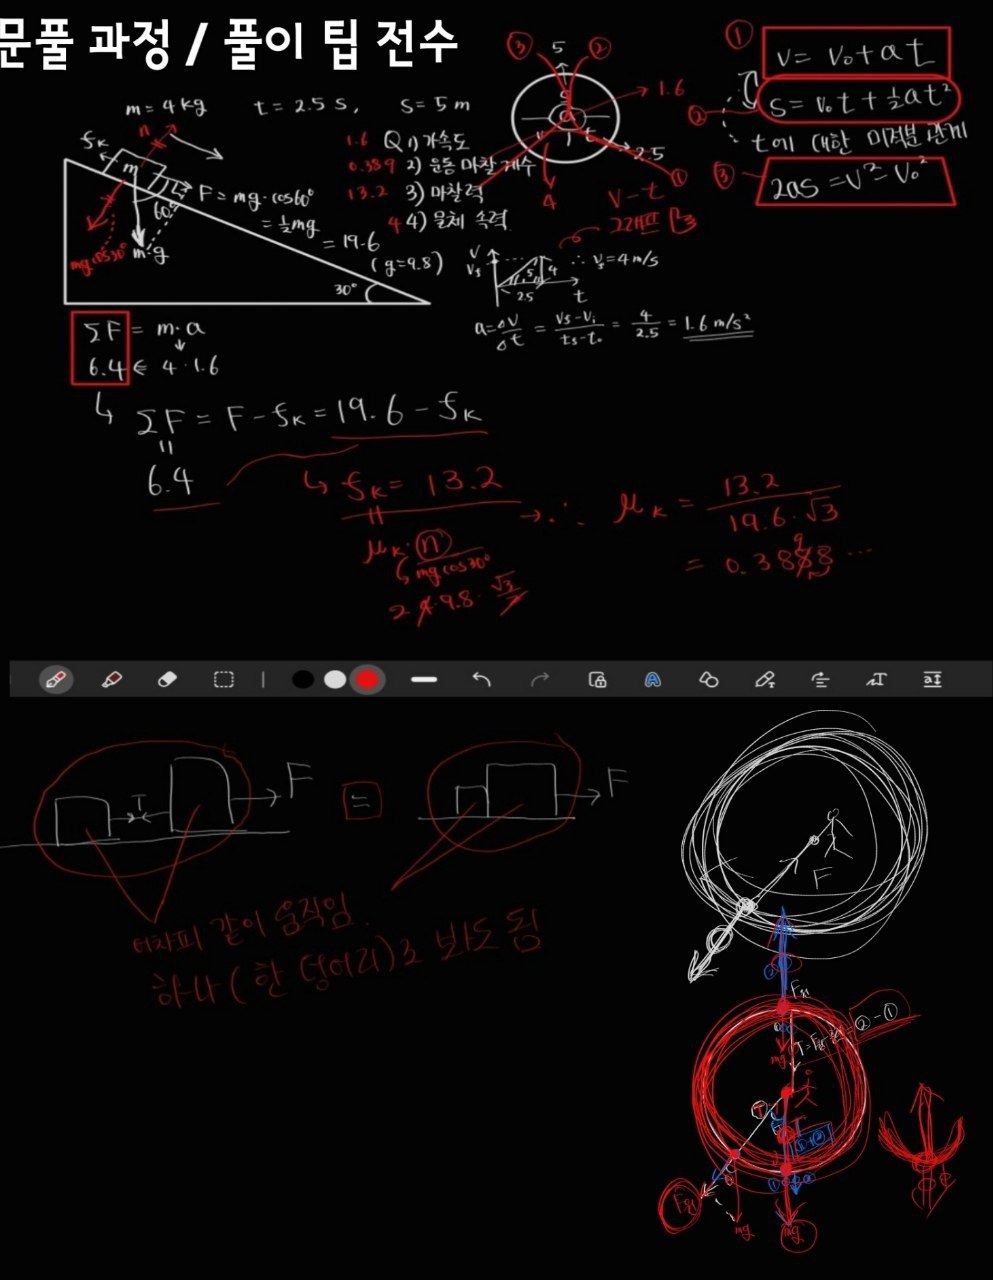 문풀 과정 / 풀이 팁 전수
m = 4kg t = 2.5 s, s = 5 m
1.6 Q 1) 가속도
0.389 2) 운동 마찰 계수
13.2 3) 마찰력
4 4) 물체 속력
fκ
n
m
60°
m·g
mg cos30°
30°
F = mg·cos60°
= ½mg
= 19.6
(g=9.8)
③ 5 ②
s
a
v t
1.6
2.5
4
①
v-t
그래프
v
vf
5 4
2.5 t
∴ vf = 4 m/s
a = Δv/Δt = (vf-vi)/(tf-t0) = 4/2.5 = 1.6 m/s²
① v = v₀ + at
② s = v₀t + ½at²
t에 대한 미적분 관계
③ 2as = v² - v₀²
ΣF = m·a
6.4 ⇐ 4·1.6
↳ ΣF = F - fκ = 19.6 - fκ
=
6.4
↳ fκ = 13.2
=
μκ·n
mg cos30°
2 4·9.8·√3/2
→ ∴ μκ = 13.2/(19.6·√3)
= 0.3888...
9
A T
T F = F
어차피 같이 움직임.
하나(한 덩어리)로 봐도 됨
F
F원
mg
②-①
T
①+②
F원
mg
mg